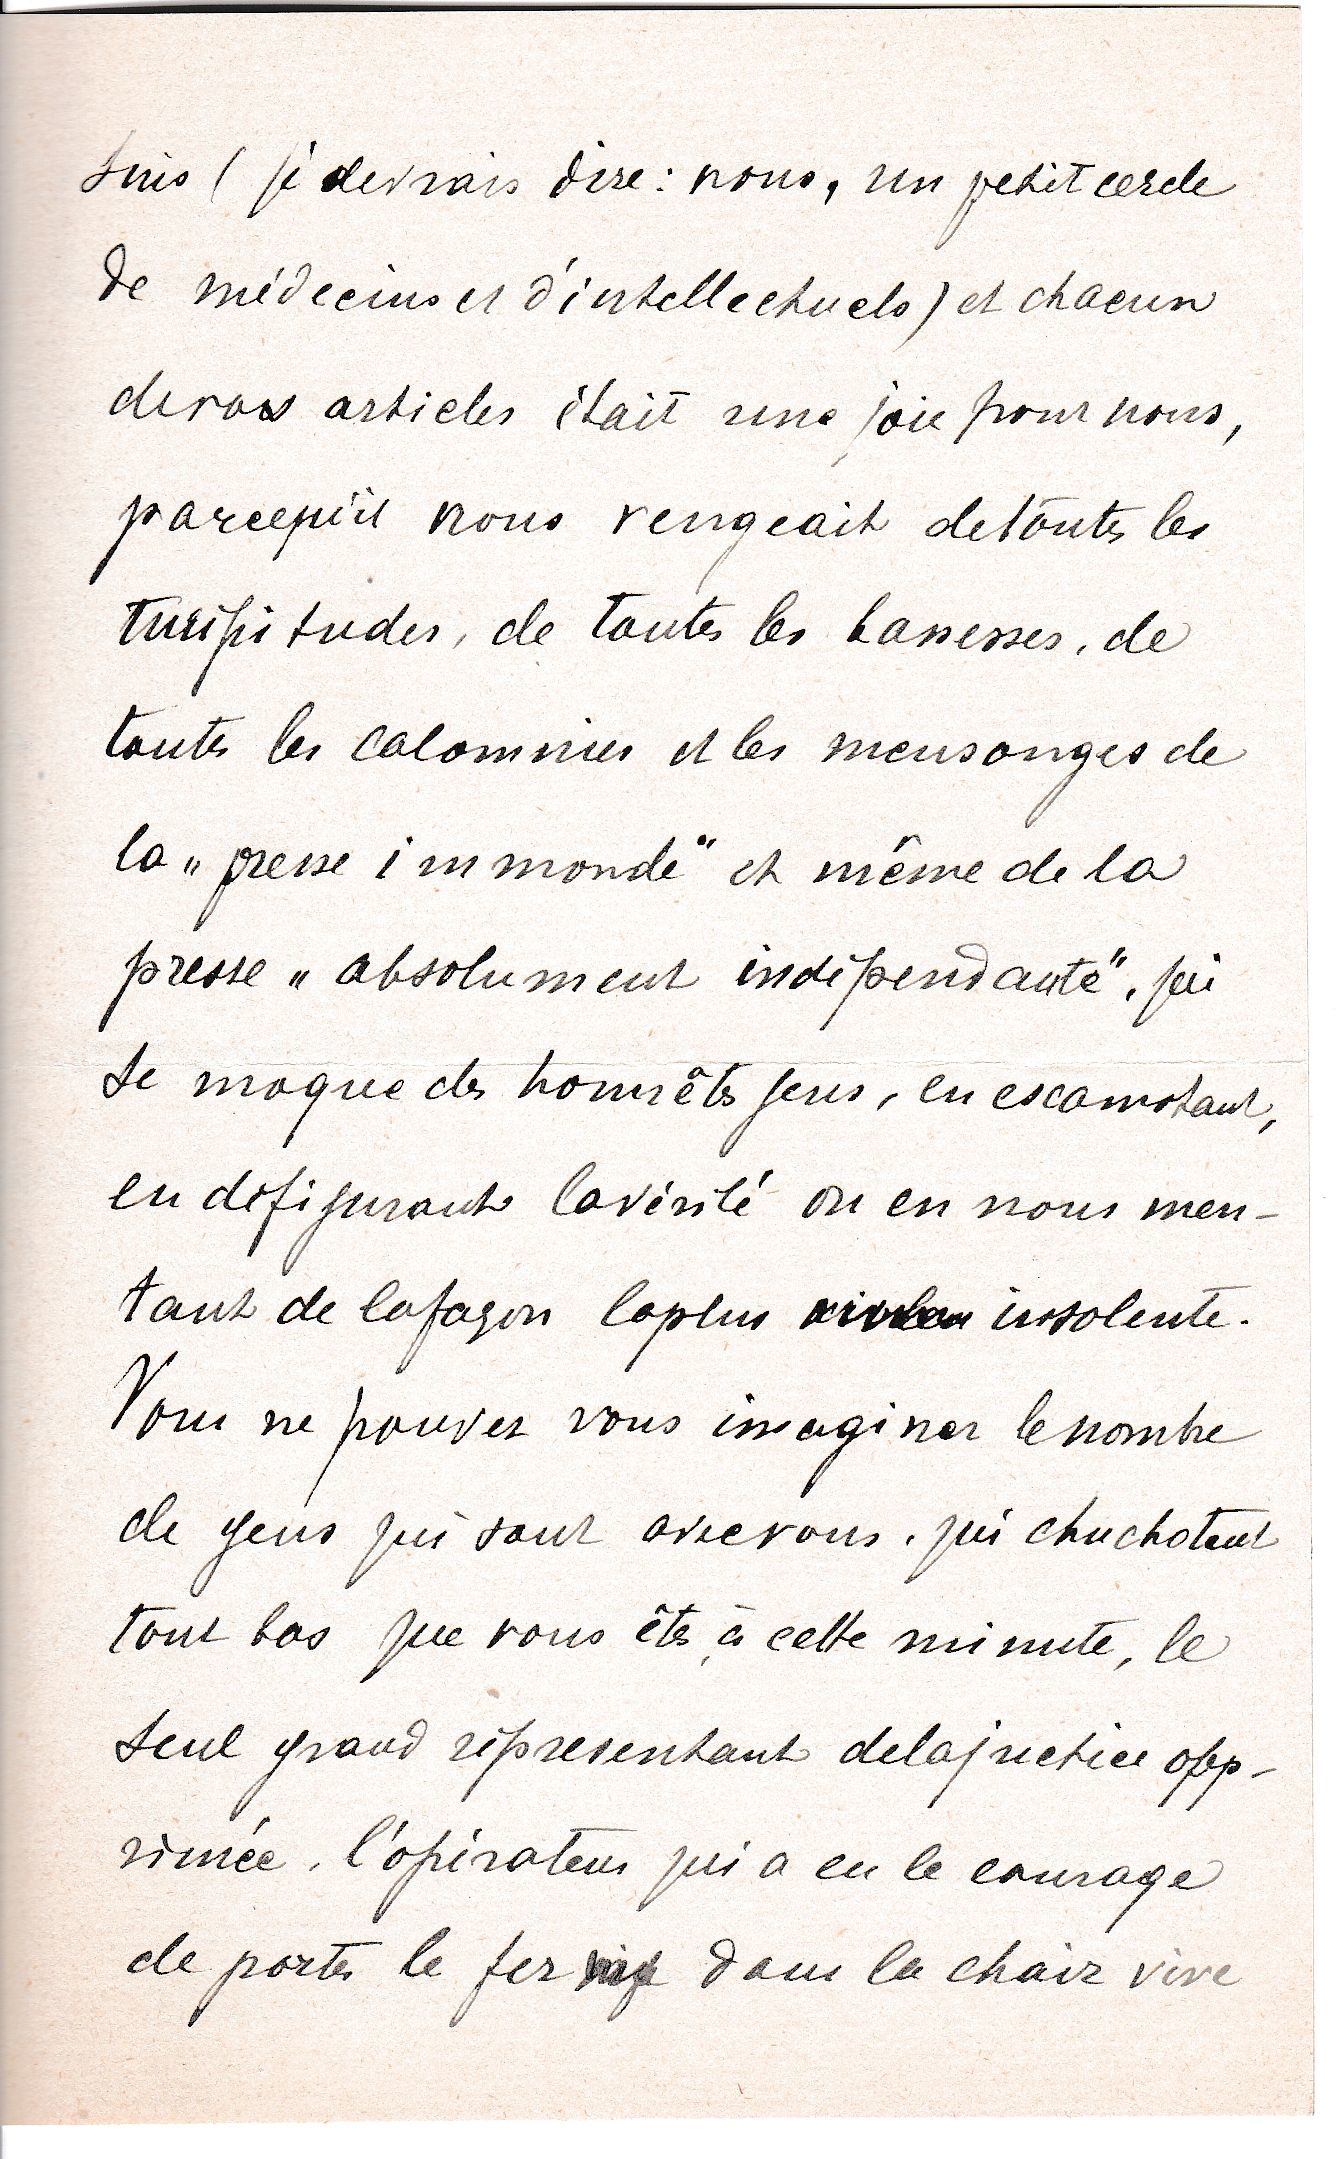 suis (je devrais dire: nous, un petit cercle
de médecins et d'intellectuels) et chacun
de vos articles était une joie pour nous,
parcequ'il nous vengeait de toutes les
turpitudes, de toutes les bassesses, de
toutes les calomnies et les mensonges de
la „presse immonde" et même de la
presse „absolument indépendante", qui
se moque des honnêtes gens, en escamotant,
en défigurant la vérité ou en nous men-
tant de la façon la plus insolente.
Vous ne pouvez vous imaginer le nombre
de gens qui sont avec vous, qui chuchotent
tout bas que vous êtes, à cette minute, le
seul grand représentant de la justice opp-
rimée, l'opérateur qui a eu le courage
de porter le fer dans la chair vive